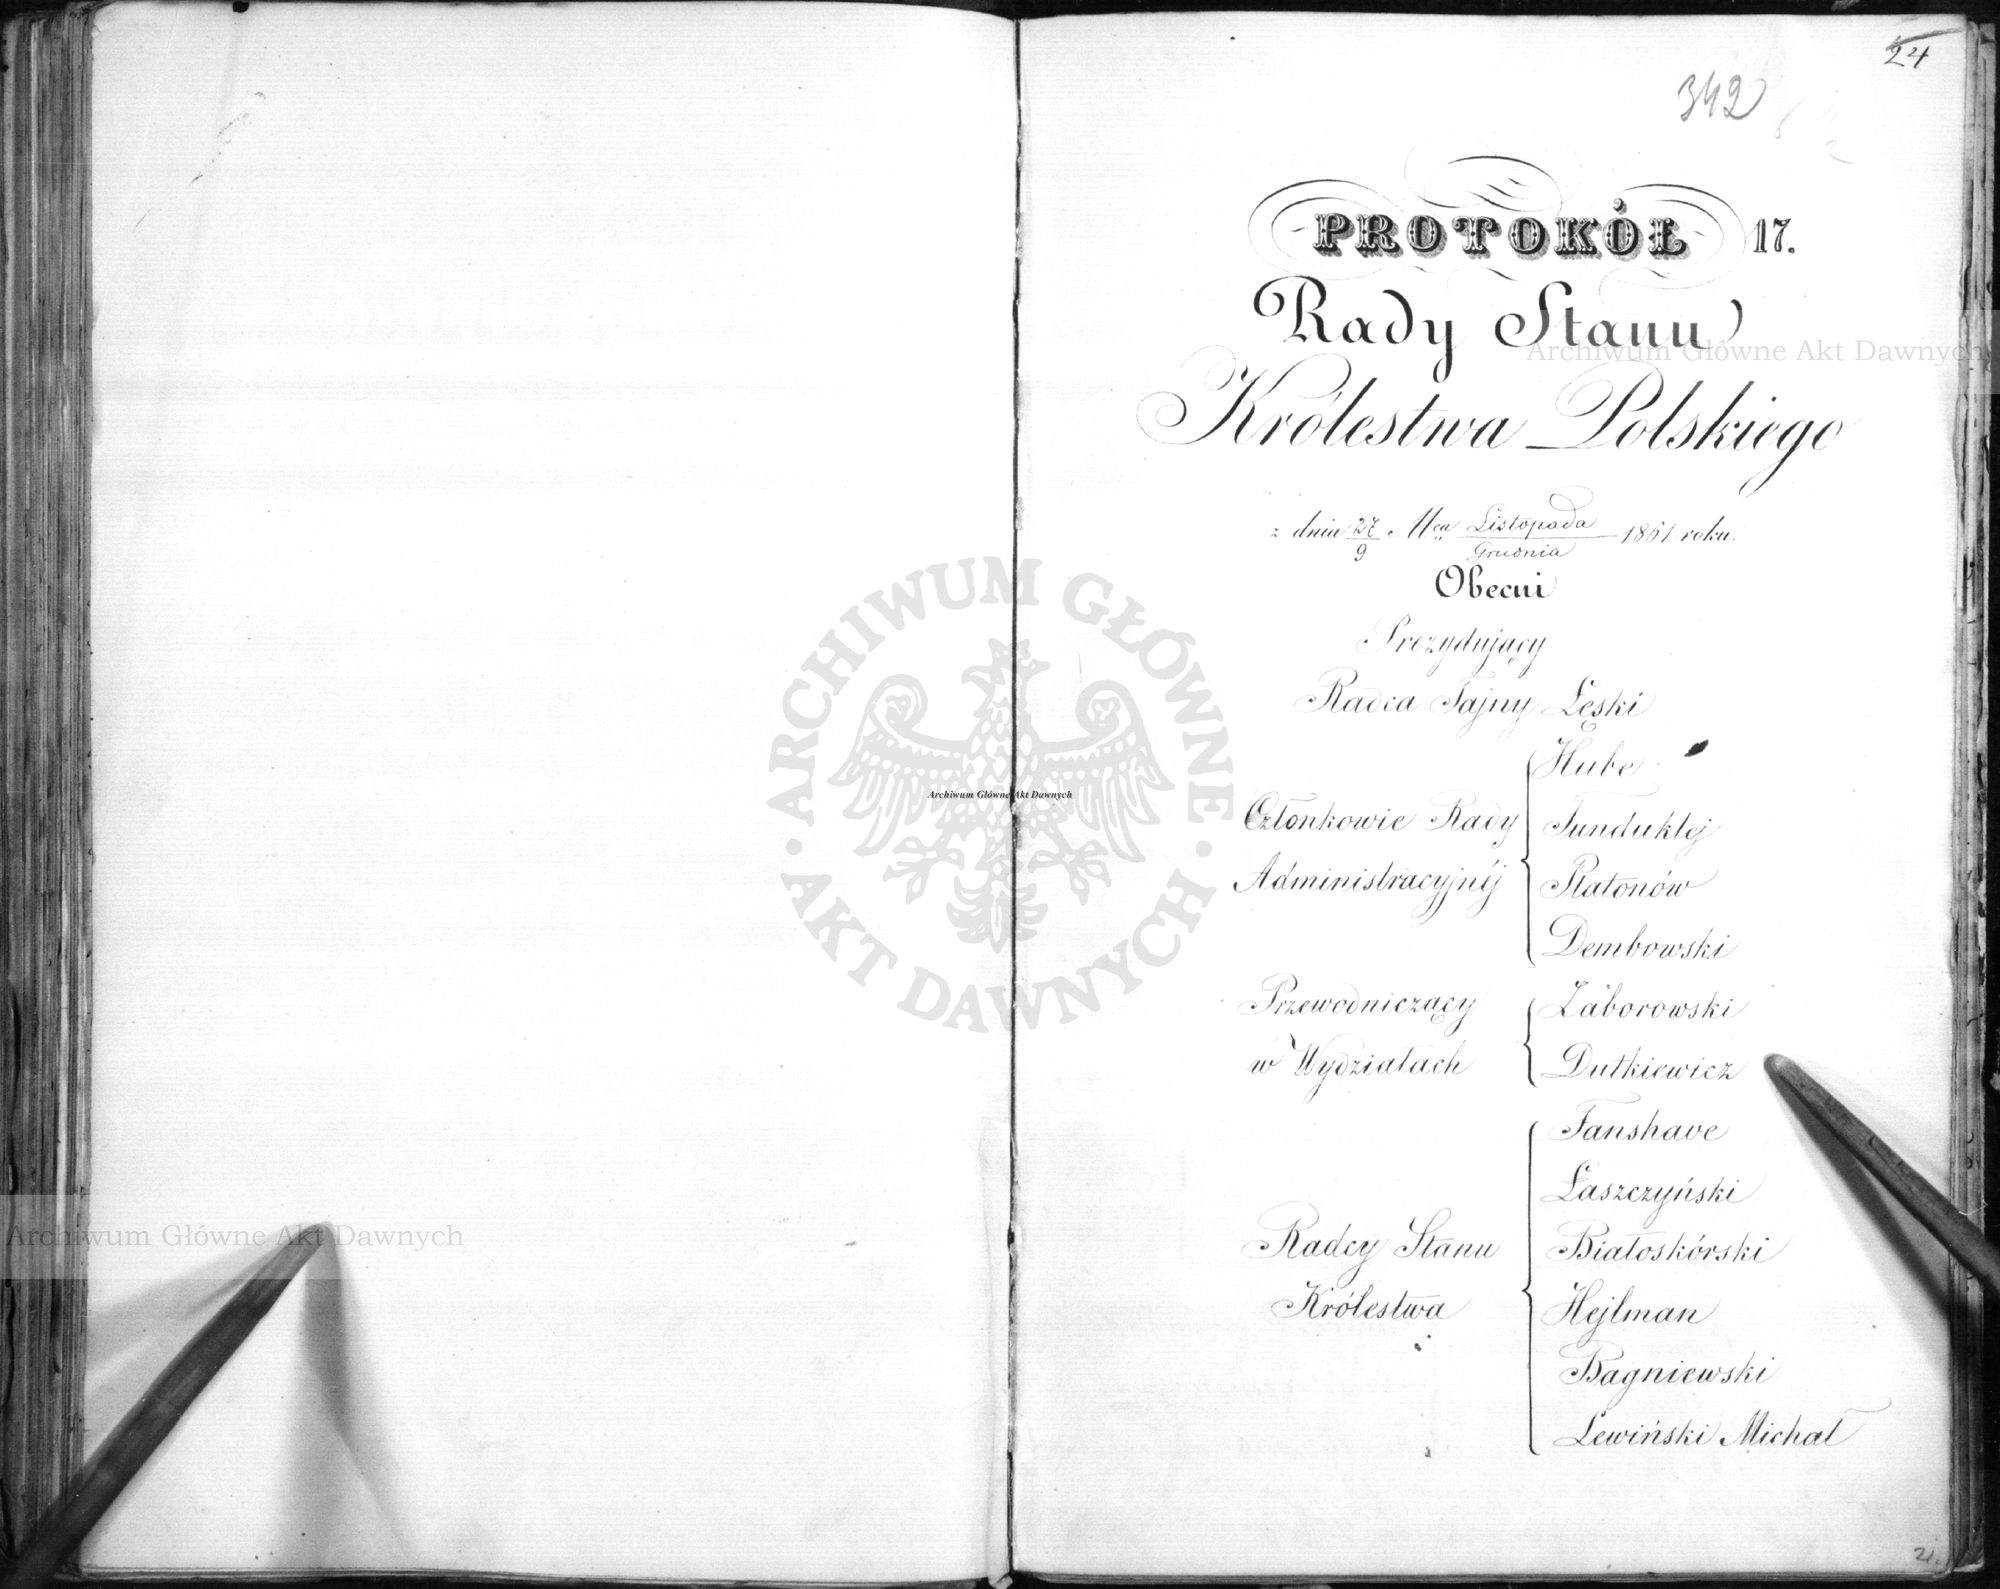 24
342
PROTOKÓŁ 17.
Rady Stanu
Królestwa Polskiego
z dnia 27/9 Mca Listopada/Grudnia 1861 roku.
Obecni
Prezydujący
Radca Tajny Łęski
Członkowie Rady Administracyjnéj
Hube
Funduklej
Platonów
Dembowski
Przewodniczący w Wydziałach
Zaborowski
Dutkiewicz
Radcy Stanu Królestwa
Fanshave
Łaszczyński
Białoskórski
Hejlman
Bagniewski
Lewiński Michał
21.
Archiwum Główne Akt Dawnych
Archiwum Główne Akt Dawnych
Archiwum Główne Akt Dawnych
ARCHIWUM GŁÓWNE
AKT DAWNYCH